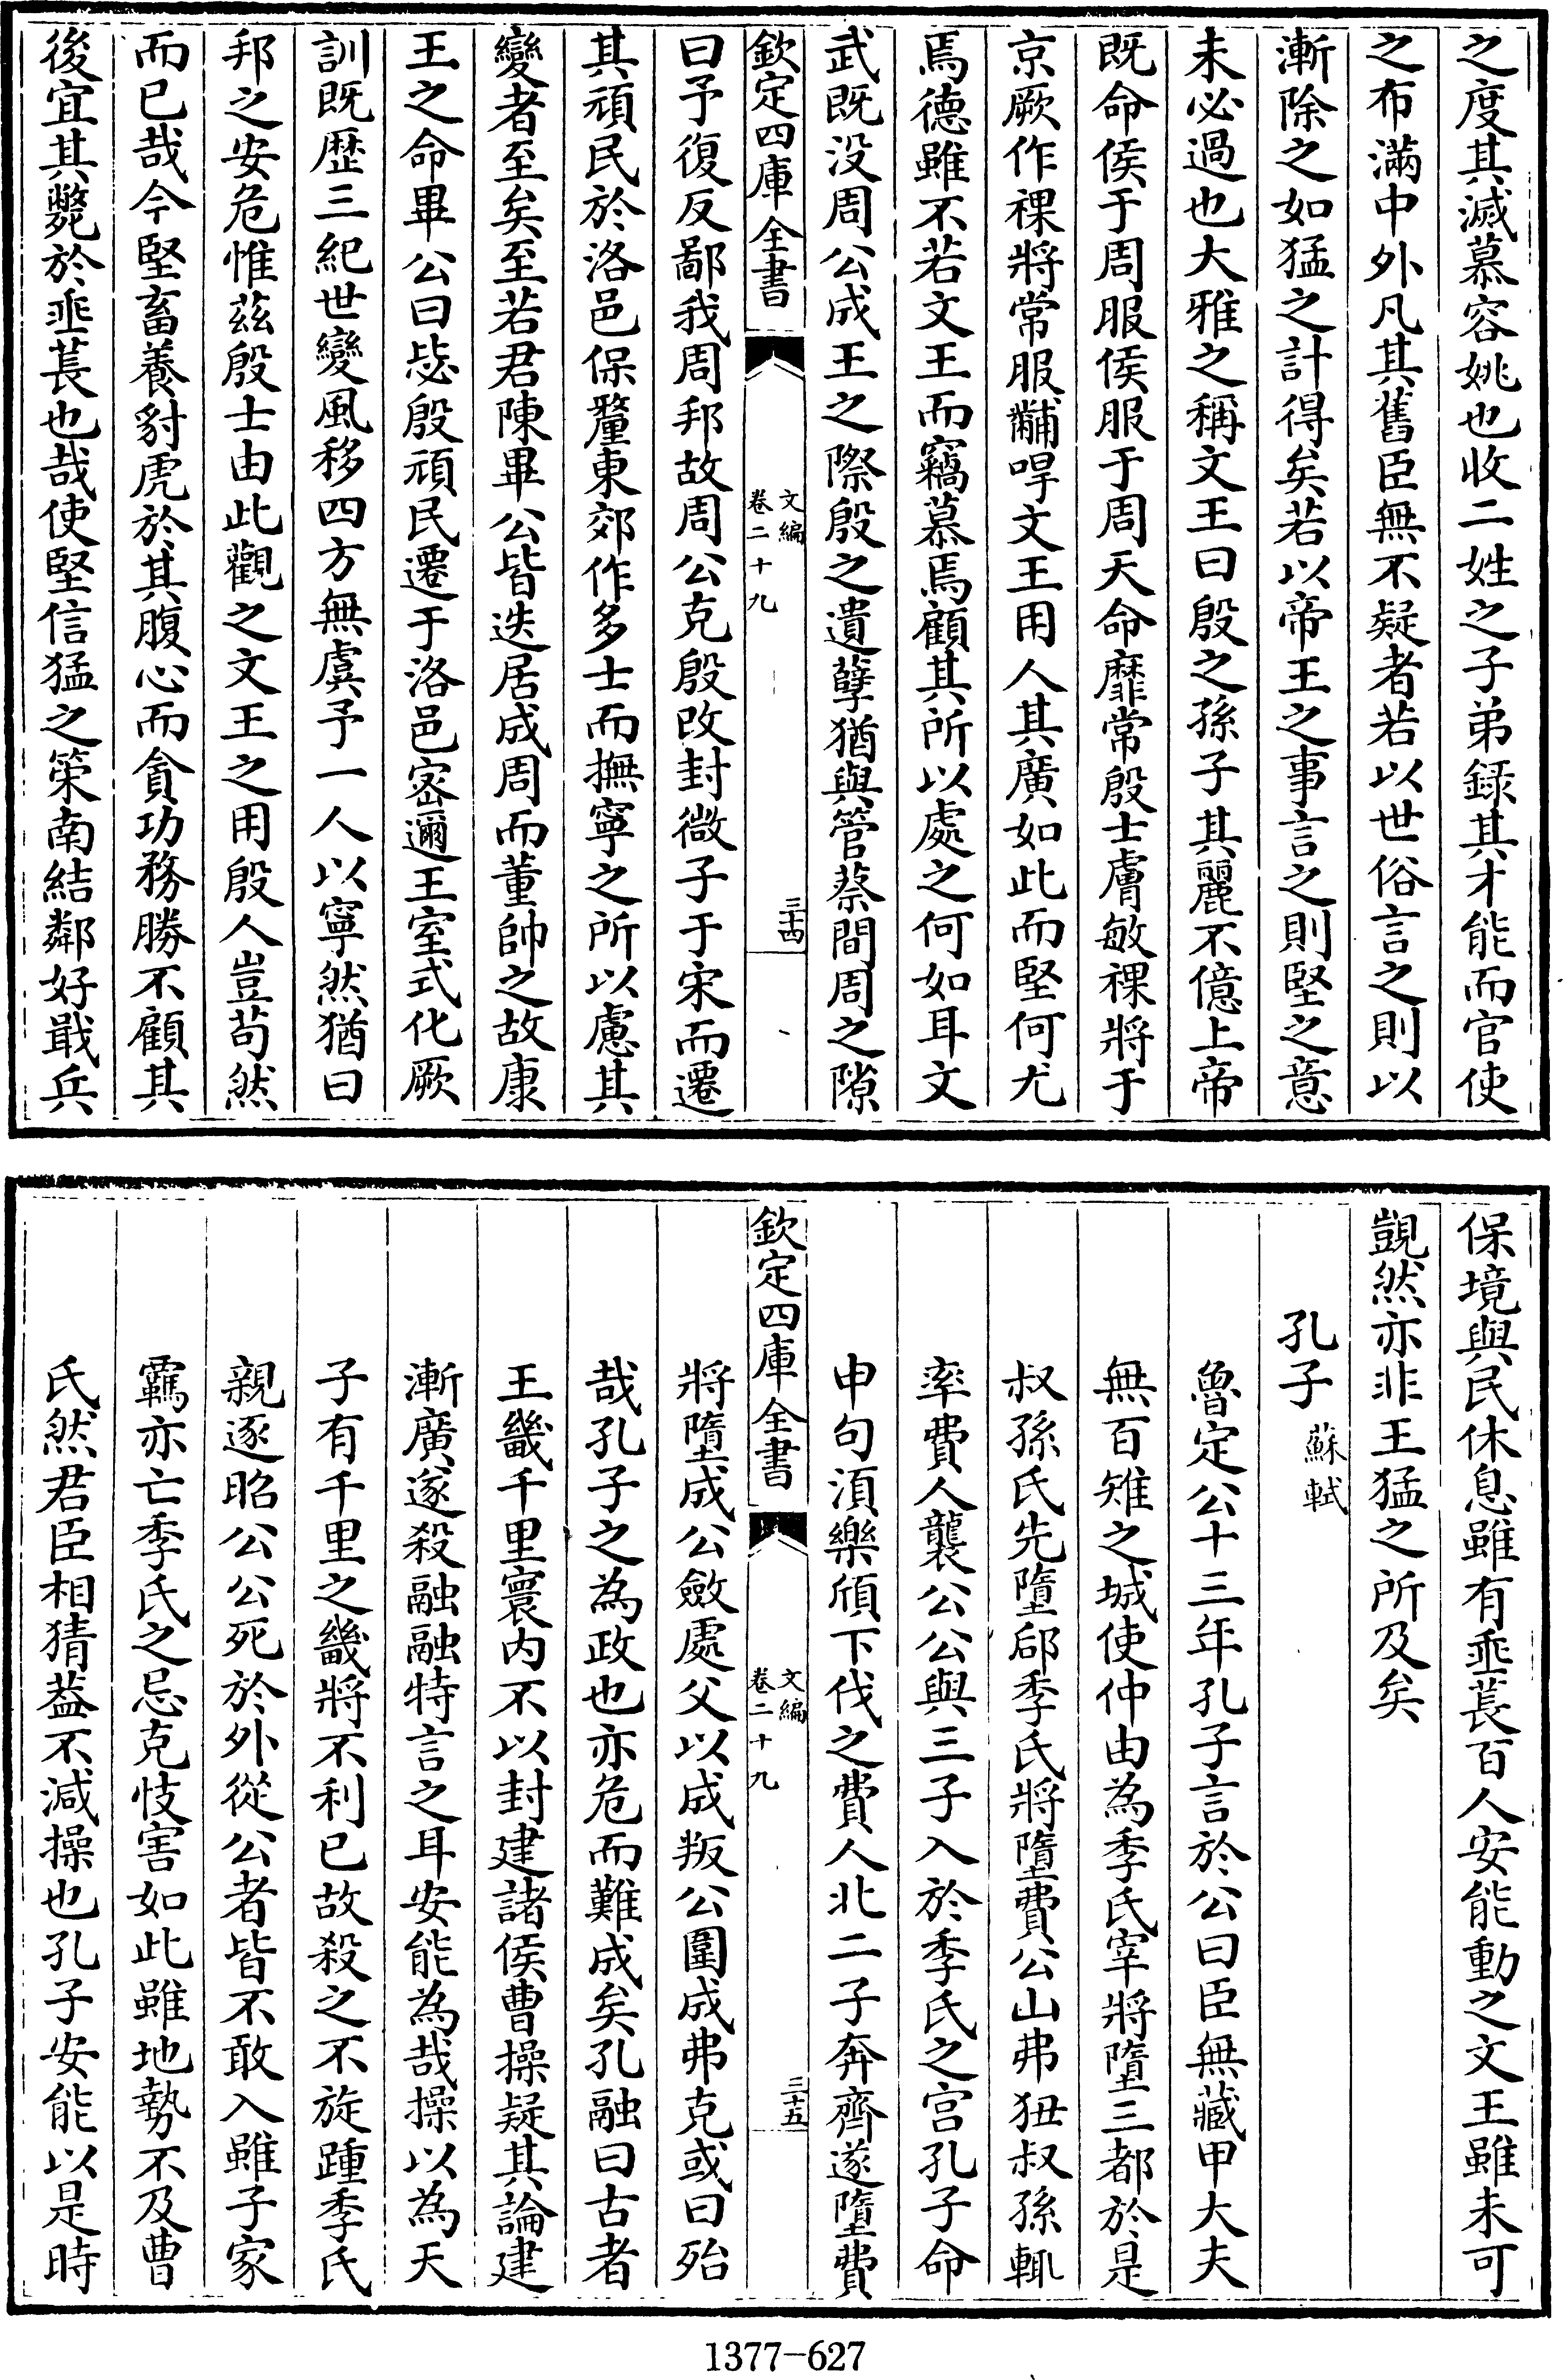 之度其滅慕容姚也收二姓之子弟録其才能而官使
之布滿中外凡其舊臣無不疑者若以世俗言之則以
漸除之如猛之計得矣若以帝王之事言之則堅之意
未必過也大雅之稱文王曰殷之孫子其麗不億上帝
既命侯于周服侯服于周天命靡常殷士膚敏祼將于
京厥作祼將常服黼冔文王用人其廣如此而堅何尤
焉德雖不若文王而竊慕焉顧其所以處之何如耳文
武既没周公成王之際殷之遺孽猶與管蔡間周之隙
欽定四庫全書
文編
卷二十九
三十四
曰予復反鄙我周邦故周公克殷改封微子于宋而遷
其頑民於洛邑保釐東郊作多士而撫寧之所以慮其
變者至矣至若君陳畢公皆迭居成周而董帥之故康
王之命畢公曰毖殷頑民遷于洛邑密邇王室式化厥
訓既歴三紀世變風移四方無虞予一人以寧然猶曰
邦之安危惟茲殷士由此觀之文王之用殷人豈苟然
而已哉今堅畜養豺虎於其腹心而貪功務勝不顧其
後宜其斃於垂萇也哉使堅信猛之策南結鄰好戢兵
保境與民休息雖有垂萇百人安能動之文王雖未可
覬然亦非王猛之所及矣
孔子 蘇軾
魯定公十三年孔子言於公曰臣無藏甲大夫
無百雉之城使仲由為季氏宰將墮三都於是
叔孫氏先墮郈季氏將墮費公山弗狃叔孫輒
率費人襲公公與三子入於季氏之宫孔子命
申句湏樂頎下伐之費人北二子奔齊遂墮費
欽定四庫全書
文編
卷二十九
三十五
將墮成公斂處父以成叛公圍成弗克或曰殆
哉孔子之為政也亦危而難成矣孔融曰古者
王畿千里寰内不以封建諸侯曹操疑其論建
漸廣遂殺融融特言之耳安能為哉操以為天
子有千里之畿將不利已故殺之不旋踵季氏
親逐昭公公死於外從公者皆不敢入雖子家
羈亦亡季氏之忌克忮害如此雖地勢不及曹
氏然君臣相猜葢不減操也孔子安能以是時
1377-627